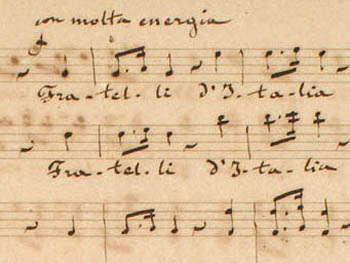 con molta energia
f
Fra-tel-li d'I-talia
Fra-tel-li d'I-talia